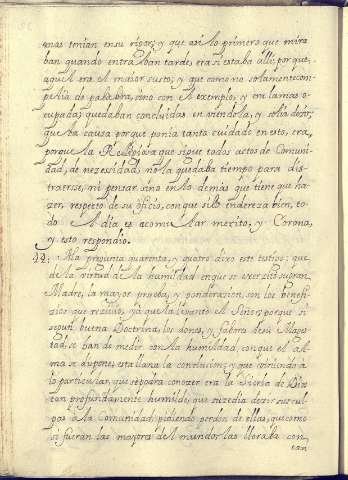 mas tenian en su rigor; y que assi lo primero que mira
ban quando entraban tarde, era si estaba alli; por que
aquel era el maior susto; y que como no solamente com-
pelia de palabra, sino con el exemplo, y em la mas o-
cupada; quedaban concluidas en viendola, y solia decir,
que la causa porque ponia tanto cuidado en esto, era
porque la Religiosa que sigue todos actos de Comuni
dad, de nezessidad, no la quedaba tiempo para dis-
traerse, ni pensar sino en lo demas que tiene que ha-
zer, respecto de su oficio, con que si lo endereza bien, to-
do el dia es acomular merito, y Corona,
y esto respondio.
44. A la pregunta quarenta, y quatro dixo este testigo: que
de la virtud de la humildad en que se exercito su gran
Madre, la mayor prueba, y ponderazion, son los benefi-
zios que rezivio, ya que la levanto el Señor; porque si
segun buena Doctrina, los dones, y fabores de su Mages
tad, se han de medir con la humildad, con que el al-
ma se dispone, esta llana la conclusion; y que viniendo a
lo particular, que se para conozer era la Sierba de Dios
tan profundamente humilde, que suzedia dezir sus cul-
pas a la Comunidad, pidiendo perdon de ellas, que como
si fueran las mayores del mundo las lloraba con
tan